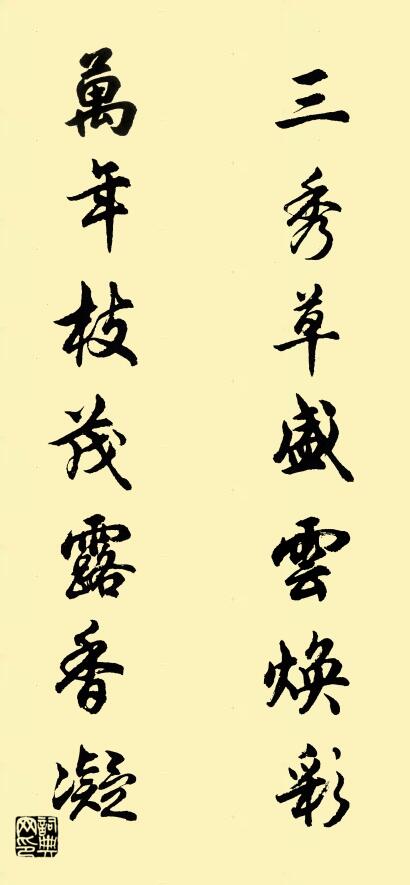 三秀草盛雲煥彩
萬年枝茂露香凝
詞典網印